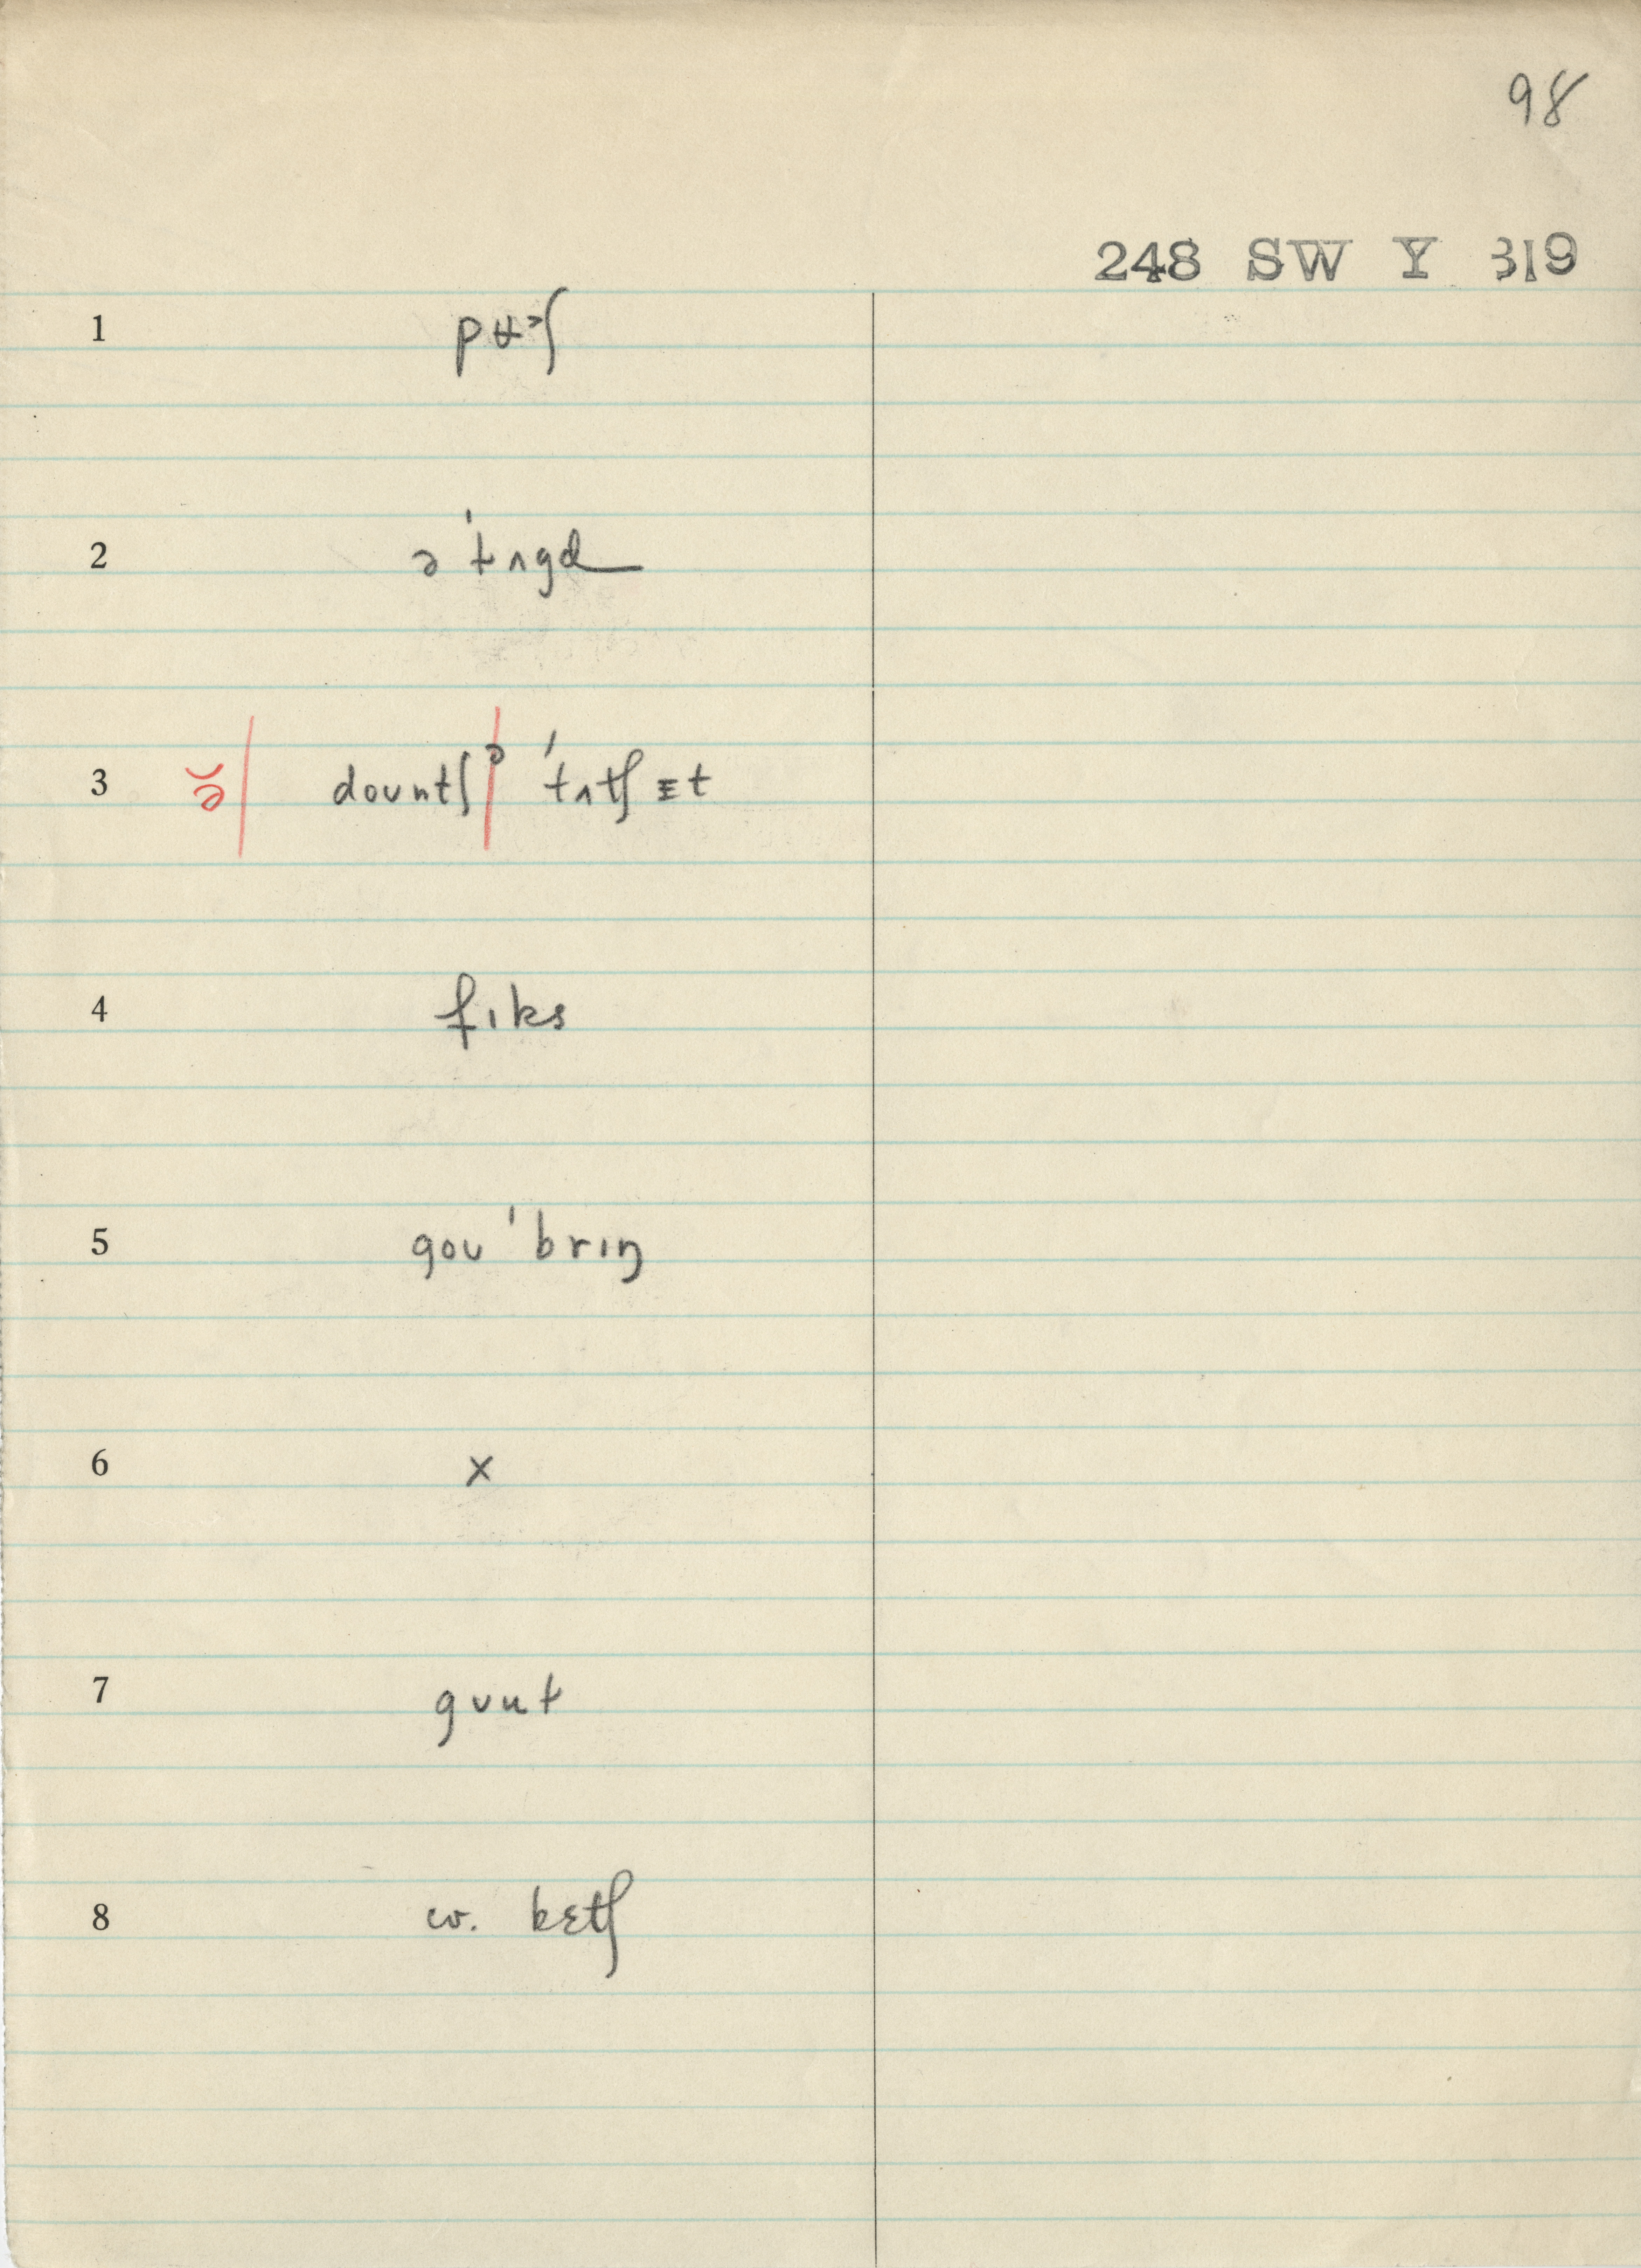 98
248 SW Y 319
1 pʉ˃ʃ
2 ə ˈtʌgd
3 ə̆| dountʃə ˈtʌtʃ ɪt
4 fɪks
5 gou ˈbrɪŋ
6 x
7 gʊut
8 w. kɛtʃ